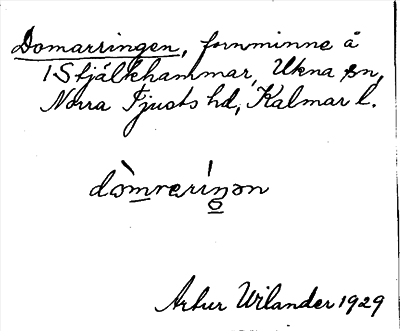 Domarringen, fornminne å
1 Stjälkhammar, Ukna sn,
Norra Tjusts hd, Kalmar l.
dòmrerínən
Artur Wilander 1929